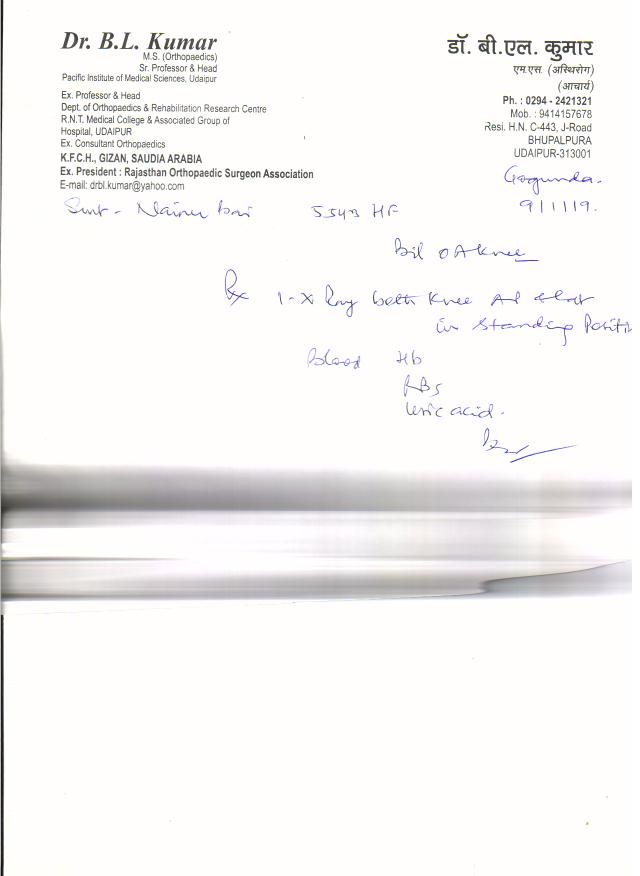 Dr. B.L. Kumar
M.S. (Orthopaedics)
Sr. Professor & Head
Pacific Institute of Medical Sciences, Udaipur
Ex. Professor & Head
Dept. of Orthopaedics & Rehabilitation Research Centre
R.N.T. Medical College & Associated Group of
Hospital, UDAIPUR
Ex. Consultant Orthopaedics
K.F.C.H., GIZAN, SAUDIA ARABIA
Ex. President : Rajasthan Orthopaedic Surgeon Association
E-mail: drbl.kumar@yahoo.com
डॉ. बी.एल. कुमार
एम.एस. (अस्थिरोग)
(आचार्य)
Ph. : 0294 - 2421321
Mob. : 9414157678
Resi. H.N. C-443, J-Road
BHUPALPURA
UDAIPUR-313001
Gogunda.
9/1/19.
Smt - bai
Bil OA knee
Rx 1-X Ray both Knee AP
in Standing Positi
Blood Hb
RBS
Uric acid.